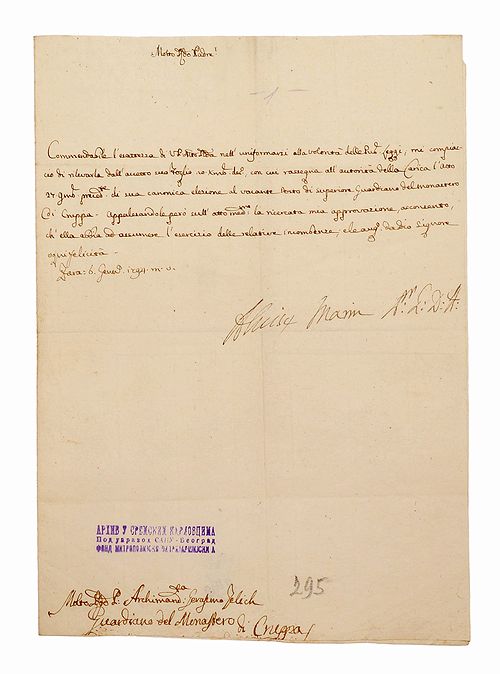 Molto Rdo Padre
-1-
Commendabile l'esatezza di V. P. Mto Rda nell'uniformarsi alla volontà delle Pub. Leggi, mi compiac-
cio di rilevarla dall'accetto suo foglio 10. Xmb. del, con cui rassegna all'autorità della Carica l'Atto
27. 9mb. di sua canonica elezione al vacante Posto di superiore Guardiano del monastero
Di Cruppa. Appuntandole però sull'atto med.mo la ricercata mia approvazione, acconsento,
ch'ella abbia ad assumere l'esercizio delle relative incombenze, e le aug.o da Dio Signore
ogni felicità.
Zara: 6. Genn. 1794. m. v.
Alvise Marin Pr. G: D: A:
АРХИВ У СРЕМСКИМ КАРЛОВЦИМА
Под управом САНУ - Београд
ФОНД МИТРОПОЛИЈСКО-ПАТРИЈАРШИЈСКИ А
295
Molto Rdo P. Archimand.ta Serafino Jelich
Guardiano del Monastero di Cruppa